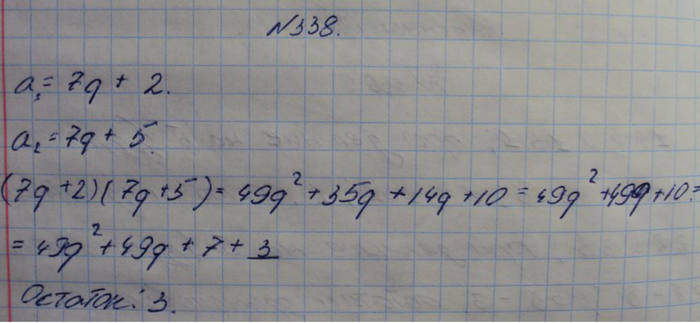 N338.
a₁ = 7q + 2.
a₂ = 7q + 5.
(7q+2)(7q+5) = 49q² + 35q + 14q + 10 = 49q² + 49q + 10 =
= 49q² + 49q + 7 + 3
Остаток: 3.